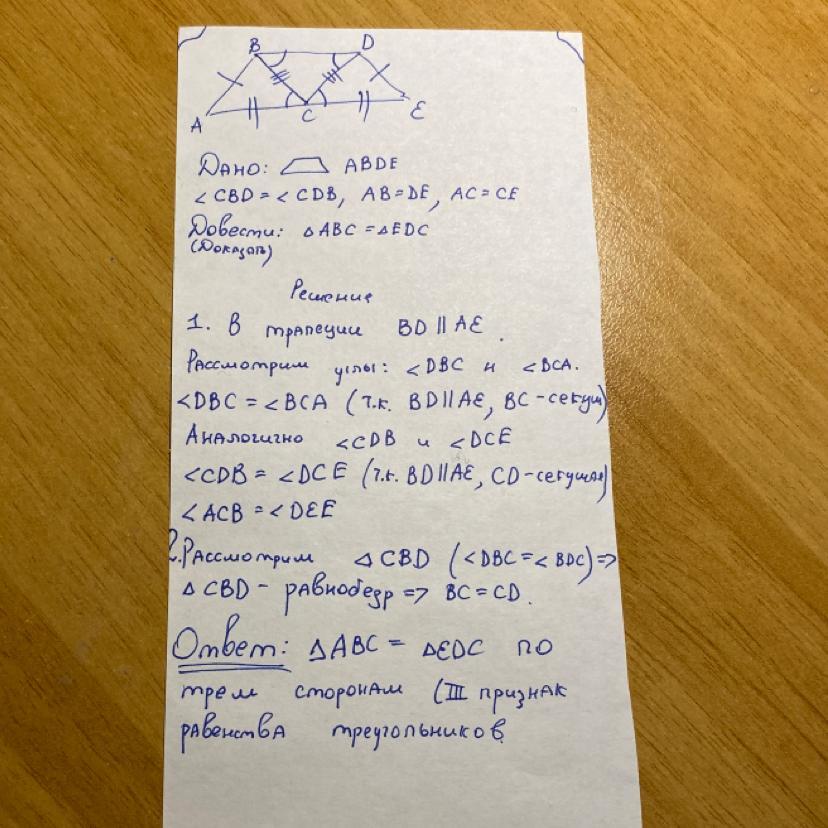 B D
A C E
Дано: ABDE
∠CBD = ∠CDB, AB = DE, AC = CE
Довести: △ABC = △EDC
(Доказать)
Решение
1. В трапеции BD || AE.
Рассмотрим углы: ∠DBC и ∠BCA.
∠DBC = ∠BCA (т.к. BD || AE, BC - секущ)
Аналогично ∠CDB и ∠DCE
∠CDB = ∠DCE (т.к. BD || AE, CD - секущая)
∠ACB = ∠DEE
2. Рассмотрим △CBD (∠DBC = ∠BDC) =>
△CBD - равнобедр => BC = CD.
Ответ: △ABC = △EDC по
трем сторонам (III признак
равенства треугольников.